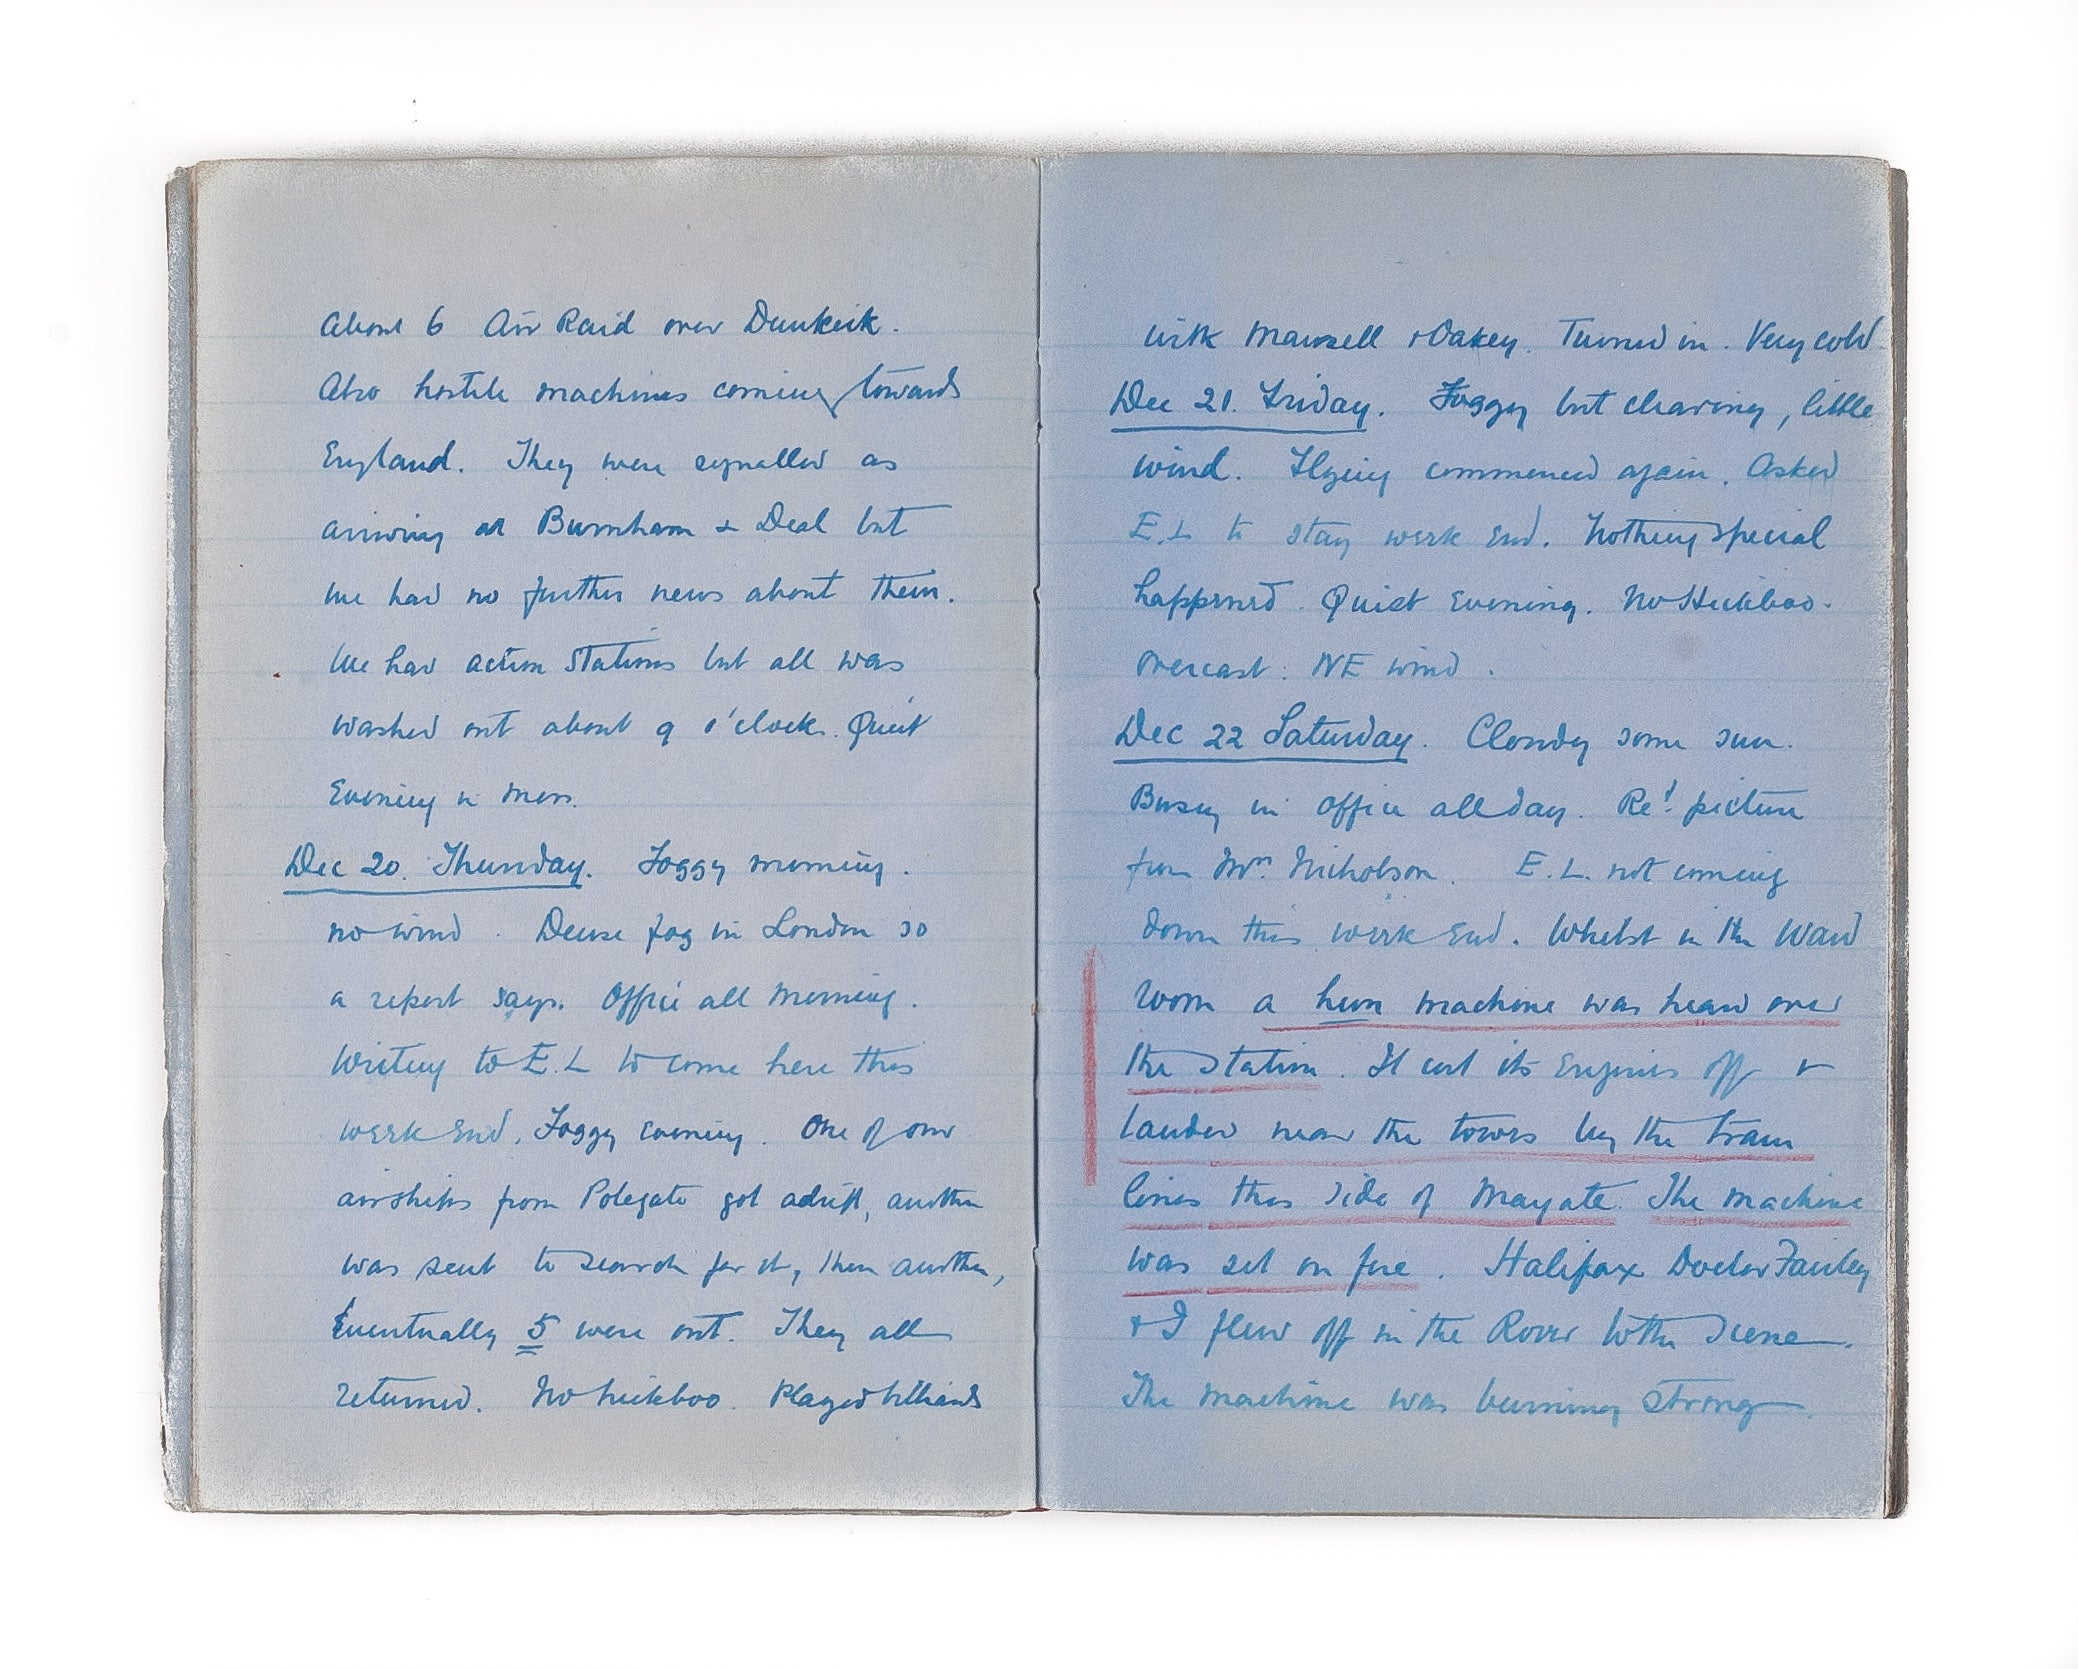 About 6 Air Raid over Dunkirk.
Also hostile machines coming towards
England. They were signalled as
arriving at Burnham & Deal but
we had no further news about them.
We had action stations but all was
washed out about 9 o'clock. Quiet
Evening in mess.
Dec 20. Thursday. Foggy morning.
no wind. Dense fog in London so
a report says. Office all morning.
Writing to E.L to come here this
week end. Foggy evening. One of our
airships from Polegate got adrift, another
was sent to search for it, then another,
Eventually 5 were out. They all
returned. No hickboo. Played billiards
with Mansell & Oakey. Turned in. Very cold
Dec 21. Friday. Foggy but clearing, little
wind. Flying commenced again. Asked
E.L to stay week end. Nothing special
happened. Quiet Evening. No Hickboo.
Overcast. NE wind.
Dec 22 Saturday. Cloudy some sun.
Busy in office all day. Recd. picture
from Mrs. Nicholson. E.L. not coming
down this week end. Whilst in the Ward
room a hun machine was heard over
the station. It cut its engines off &
landed near the towers by the tram
lines this side of Margate. The machine
was set on fire. Halifax Doctor Fairley
& I flew off in the Rover to the scene.
The machine was burning strong.